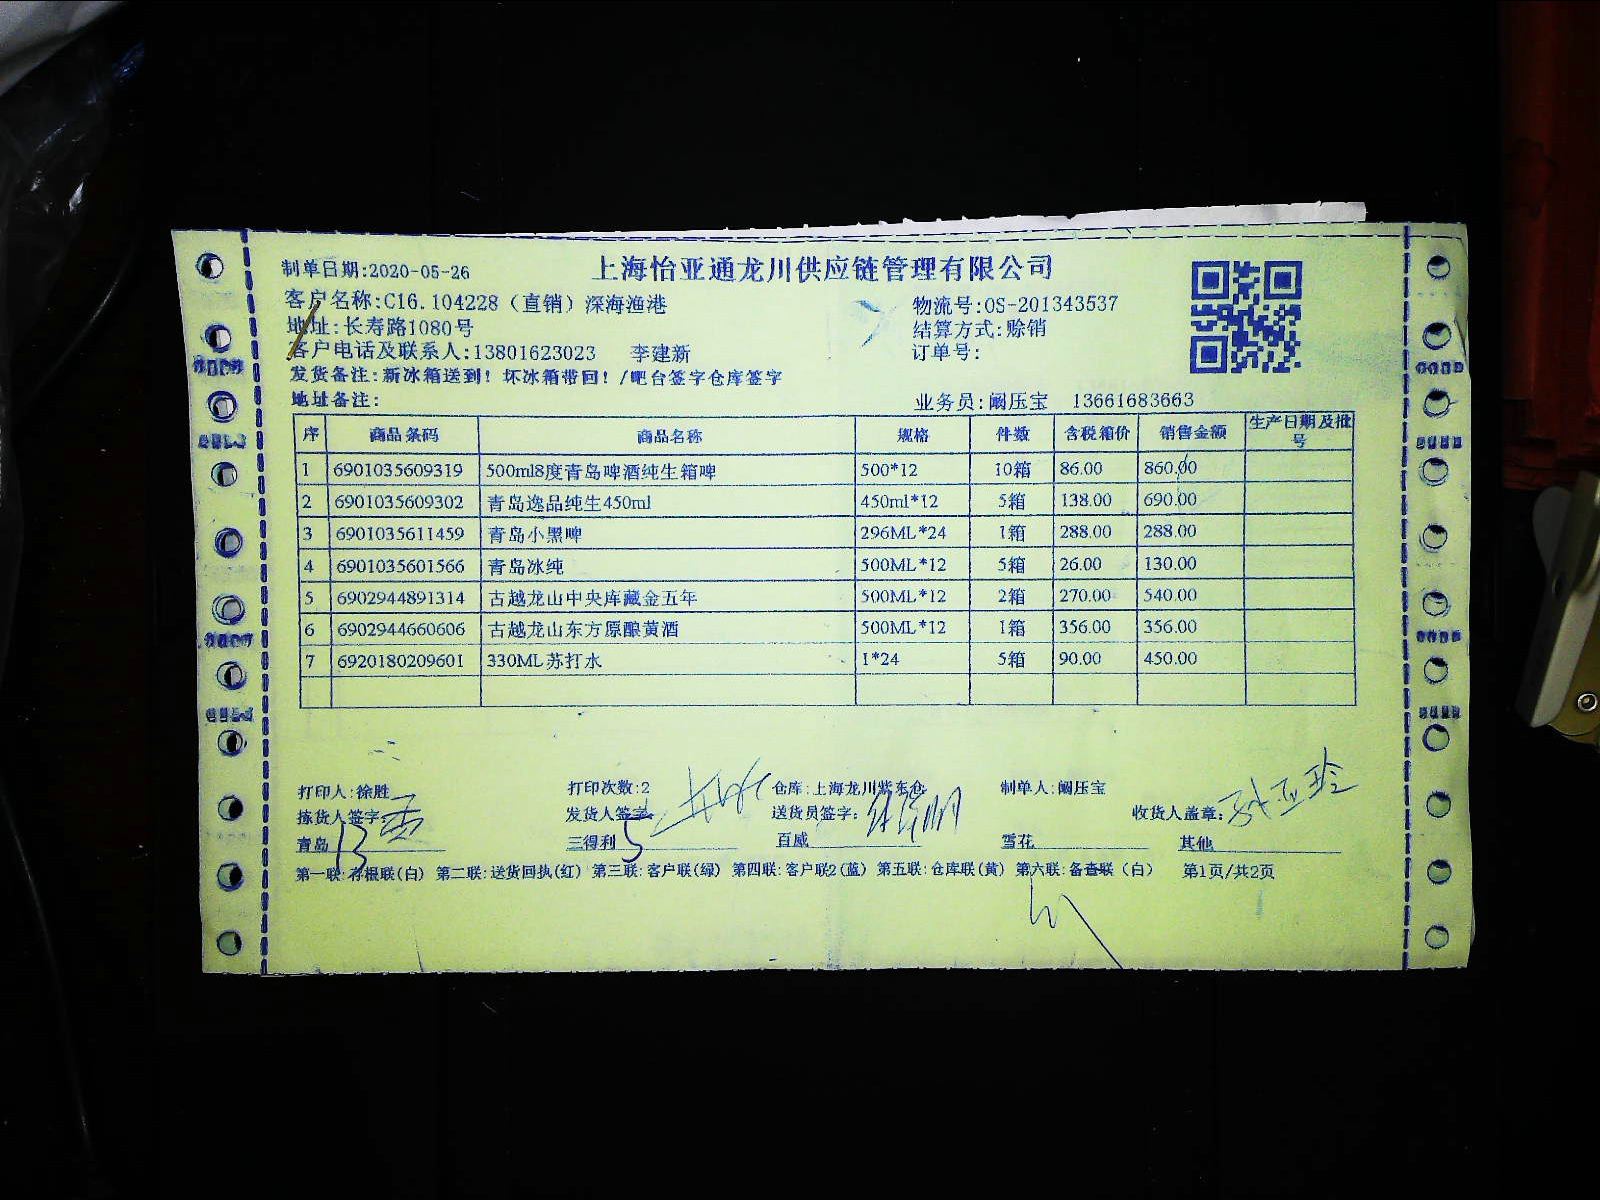 上海怡亚通龙川供应链管理有限公司
制单日期:2020-05-26
客户名称:C16.104228（直销）深海渔港 物流号:OS-201343537
地址:长寿路1080号 结算方式:赊销
客户电话及联系人:13801623023 李建新 订单号:
发货备注:新冰箱送到！坏冰箱带回！/吧台签字仓库签字
地址备注: 业务员:阚压宝 13661683663
序 商品条码 商品名称 规格 件数 含税箱价 销售金额 生产日期及批号
1 6901035609319 500ml8度青岛啤酒纯生箱啤 500*12 10箱 86.00 860.00
2 6901035609302 青岛逸品纯生450ml 450ml*12 5箱 138.00 690.00
3 6901035611459 青岛小黑啤 296ML*24 1箱 288.00 288.00
4 6901035601566 青岛冰纯 500ML*12 5箱 26.00 130.00
5 6902944891314 古越龙山中央库藏金五年 500ML*12 2箱 270.00 540.00
6 6902944660606 古越龙山东方原酿黄酒 500ML*12 1箱 356.00 356.00
7 6920180209601 330ML苏打水 1*24 5箱 90.00 450.00
打印人:徐胜 打印次数:2 仓库:上海龙川紫东仓 制单人:阚压宝
拣货人签字: 发货人签字: 送货员签字: 收货人盖章:
青岛 13 三得利 5 百威 雪花 其他
第一联:存根联(白) 第二联:送货回执(红) 第三联:客户联(绿) 第四联:客户联2(蓝) 第五联:仓库联(黄) 第六联:备查联（白） 第1页/共2页